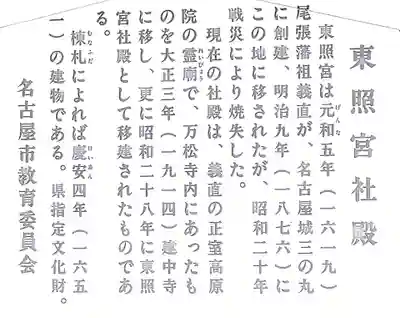 東照宮社殿
東照宮は元和五年（一六一九）
げんな
尾張藩祖義直が、名古屋城三の丸
に創建、明治九年（一八七六）に
この地に移されたが、昭和二十年
戦災により焼失した。
現在の社殿は、義直の正室高原
院の霊廟で、万松寺内にあったも
れいびょう
のを大正三年（一九一四）建中寺
に移し、更に昭和二十八年に東照
宮社殿として移建されたものであ
る。
棟札によれば慶安四年（一六五
むなふだ
けいあん
一）の建物である。県指定文化財。
名古屋市教育委員会